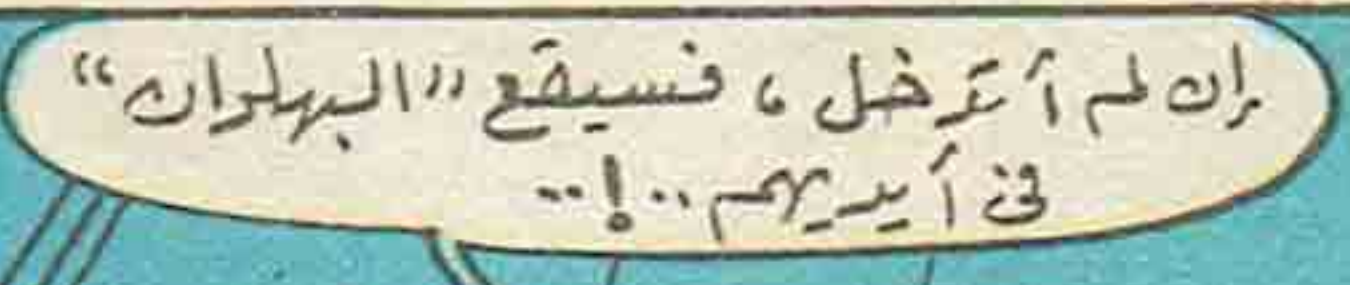 إن لم أتدخل، فسيقع "البهلوان"
فى أيديهم..!..